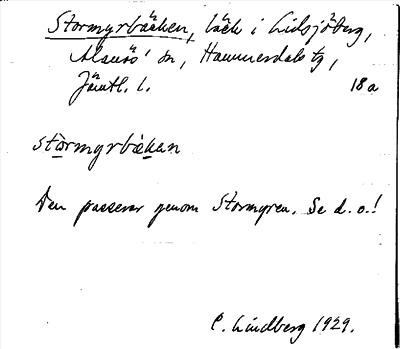 Stormyrbäcken, bäck i Lidsjöberg,
Alanäs sn, Hammerdals tg,
Jämtl. l. 18a
stòrmyrbèkan
Den passerar genom Stormyren. Se d. o.!
C. Lindberg 1929.